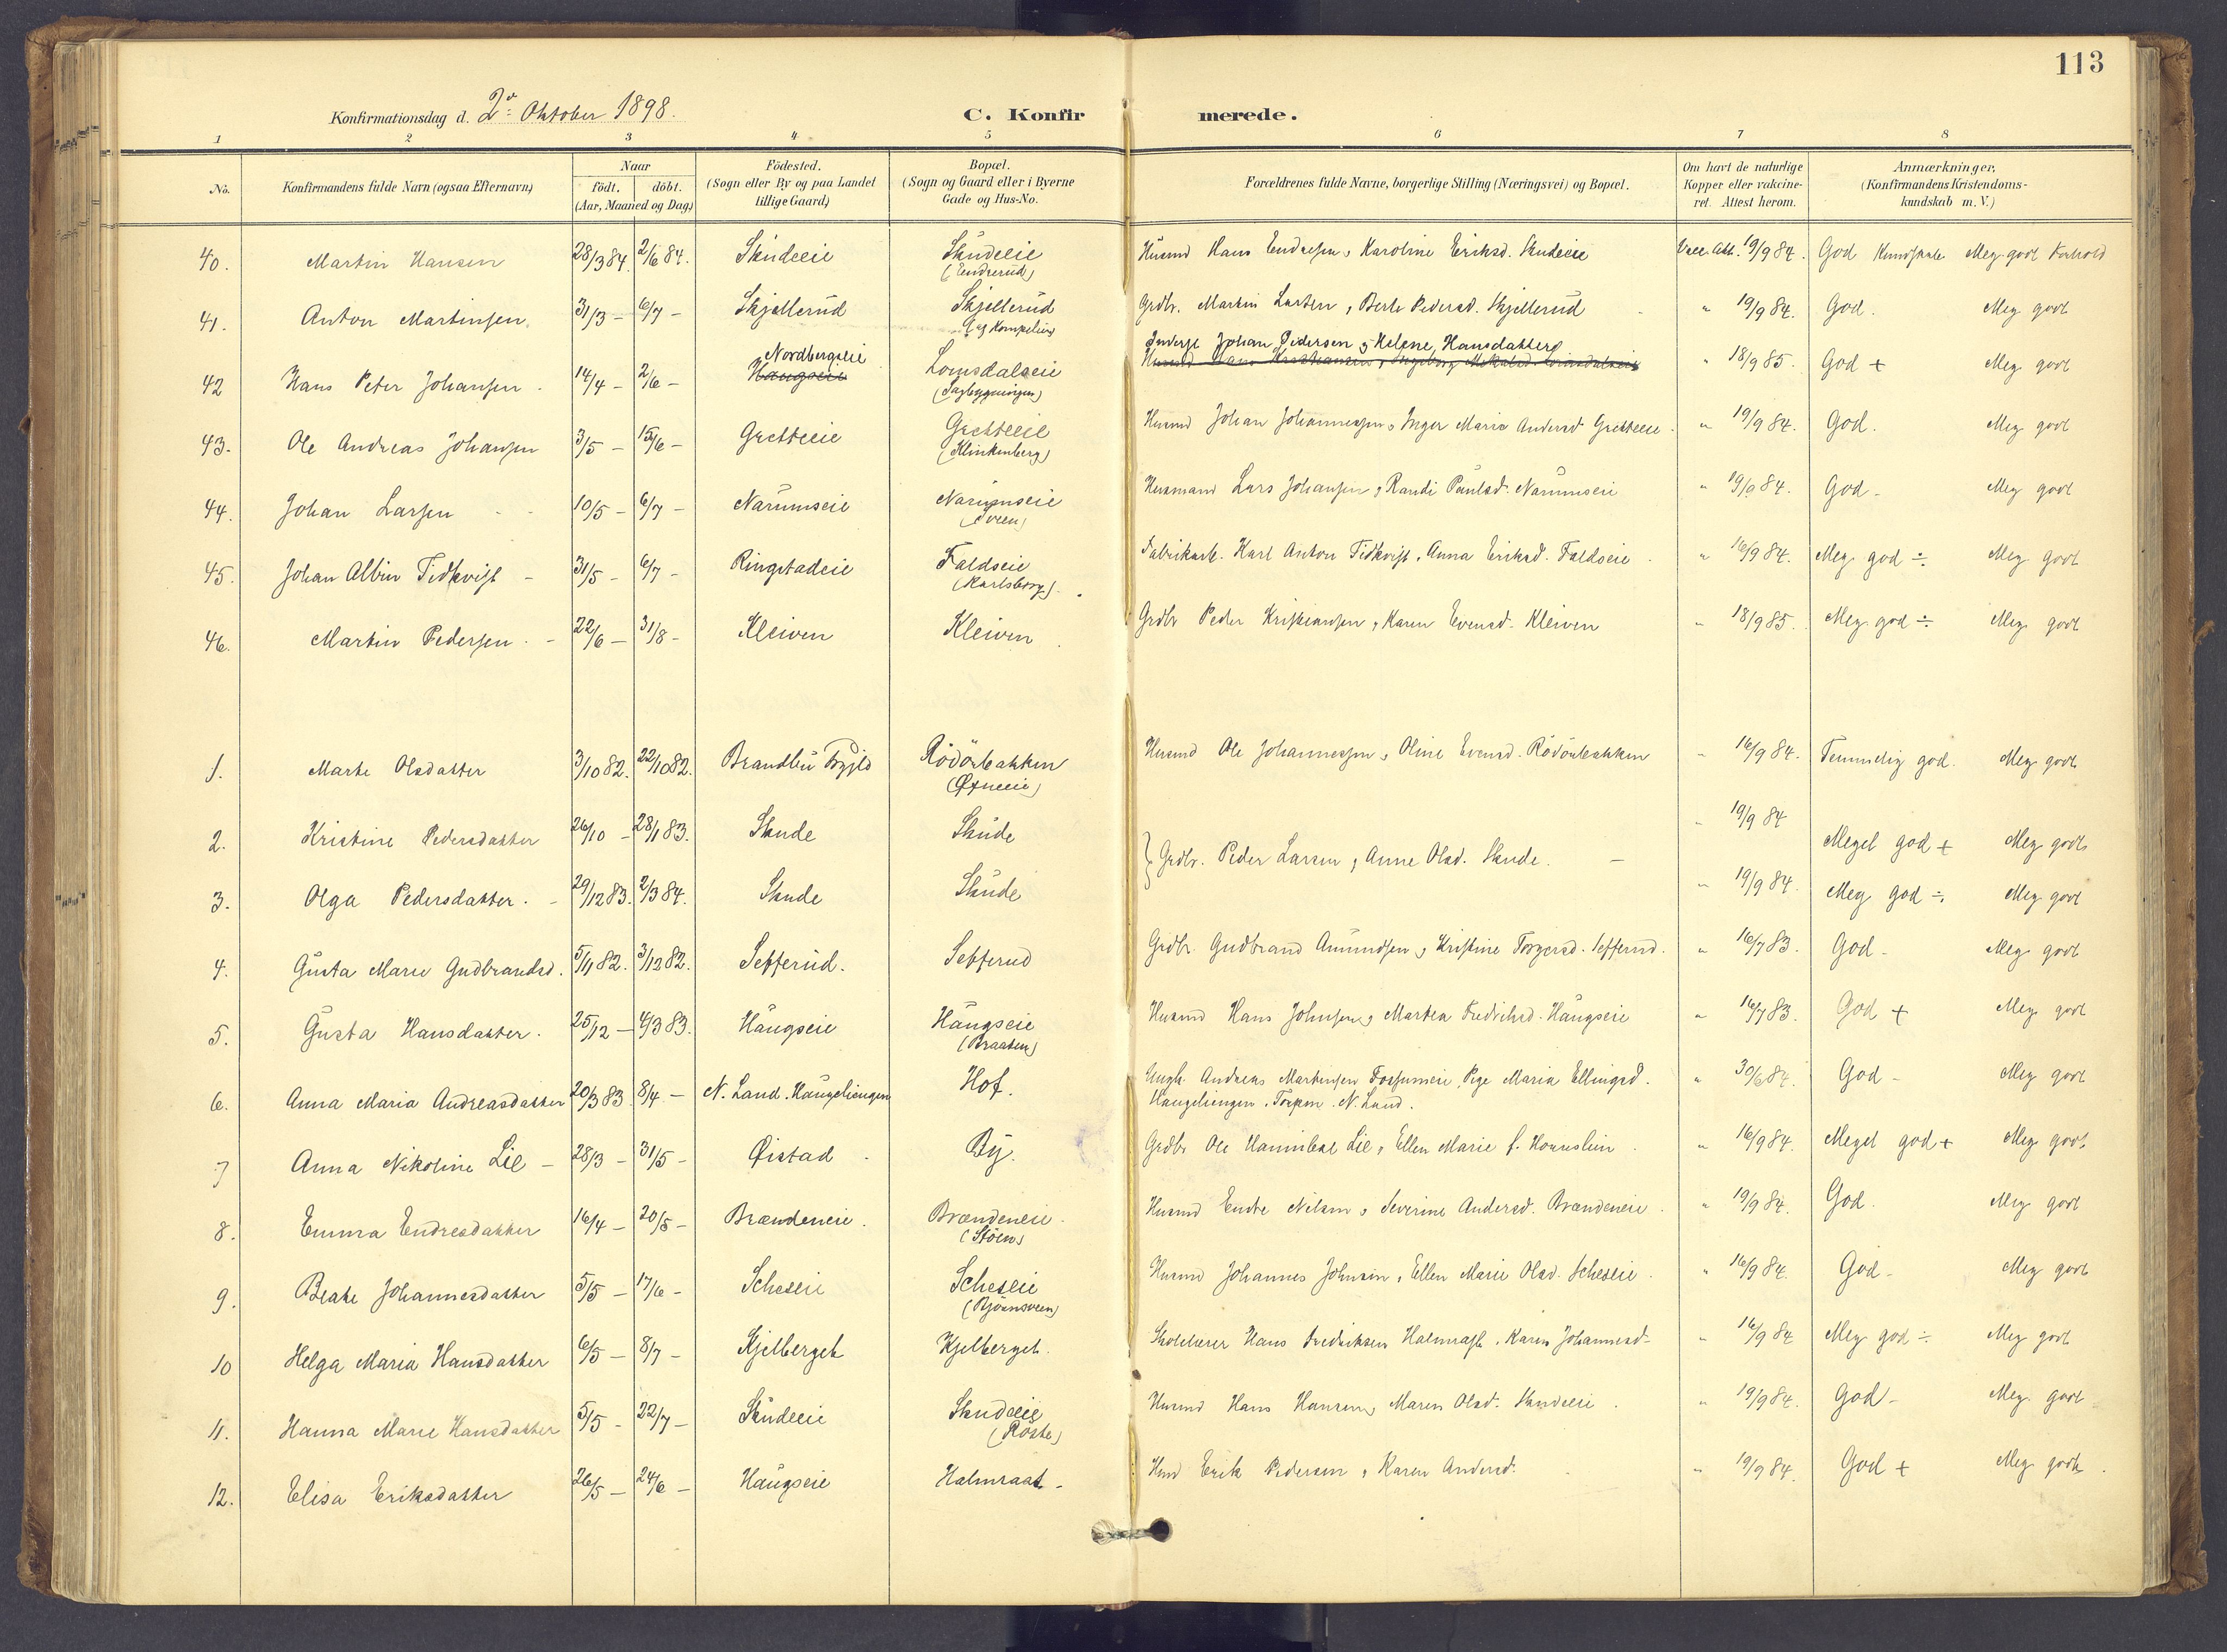 113
Konfirmationsdag d. 2den Oktober 1898.
C. Konfirmerede.
1 2 3 4 5 6 7 8
No. Konfirmandens fulde Navn (ogsaa Efternavn) Naar födt. döbt. (Aar, Maaned og Dag) Födested. (Sogn eller By og paa Landet tillige Gaard) Bopæl. (Sogn og Gaard eller i Byerne Gade og Hus-No. Forældrenes fulde Navne, borgerlige Stilling (Næringsvei) og Bopæl. Om havt de naturlige Kopper eller vakcineret. Attest herom. Anmærkninger, (Konfirmandens Kristendomskundskab m. V.)
40. Martin Hansen 28/3 84. 2/6 84. Skudeeie Skudeeie (Endrerud) Husmd Hans Endresen, Karoline Eriksd. Skudeeie Vacc. Att. 19/9 84. God Kundskab Meg. godt Forhold
41. Anton Martinsen 31/3 – 6/7 – Skjellerud Skjellerud Grdbr. Martin Larsen, Berte Pedersd. Skjellerud " 19/9 84. God. Meg godt
42 Hans Peter Johansen 14/4 – 2/6 – Nordbergseie Haugseie Lomsdalseie (Sagbygningen) Inderst Johan Pedersen og Helene Hansdatter " 18/9 85. God + Meg godt
43. Ole Andreas Johansen 3/5 – 15/6 – Gretteeie Gretteeie (Klinkenberg) Husmd Johan Johannessen, Inger Maria Andersd Gretteeie " 19/9 84. God. Meg godt
44. Johan Larsen 10/5 – 6/7 – Narumseie Narumseie (Sveen) Husmand Lars Johansen, Randi Paulsd. Narumseie " 19/9 84. God – Meg godt
45. Johan Albin Tidkvist 31/5 – 6/7 – Ringstadeie Faldseie (Karlsborg) Fabrikarb. Karl Anton Tidkvist, Anna Eriksd. Faldseie " 16/9 84. Meg god ÷ Meg godt
46. Martin Pedersen 22/6 – 31/8 – Kleiven Kleiven Grdbr Peder Kristiansen, Karen Evensd. Kleiven " 18/9 85. Meg god ÷ Meg godt
1. Marte Olsdatter 3/10 82. 22/10 82. Brandbu Bygd Rödörbakken Husmd Ole Johannessen, Oline Evensd. Rödörbakken " 16/9 84. Temmelig god. Meg godt
2. Kristine Pedersdatter 26/10 – 28/1 83. Skude Skude Grdbr. Peder Larsen, Anne Olsd. Skude. " 19/9 84 Meget god + Meg godt
3. Olga Pedersdatter 29/12 83. 2/3 84. Skude Skude " 19/9 84. Meg god ÷ Meg godt
4. Gusta Marie Gudbrandsd. 5/11 82. 3/12 82. Sefferud. Sefferud Grdbr. Gudbrand Amundsen, Kristine Torgersd. Sefferud. " 16/7 83. God – Meg godt
5. Gusta Hansdatter 25/12 – 4/3 83. Haugseie Haugseie (Braaten) Husmd Hans Johnsen, Martea Fredriksd. Haugseie " 16/7 83. God + Meg godt
6. Anna Maria Andreasdatter 20/3 83 8/4 – N. Land. Haugeliengen Hof. Ungk. Andreas Martinsen Fossumeie, Pige Maria Ellingsd. Haugeliengen. Torpen. N. Land. " 30/6 84. God – Meg godt
7 Anna Nikoline Lie 28/3 – 31/5 – Øistad By. Grdbr Ole Hannibal Lie, Ellen Marie f. Hovnslien " 16/9 84. Meget god + Meg godt
8. Emma Endresdatter 16/4 – 20/5 – Brændeneie Brændeneie (Stöen) Husmd Endre Nilsen, Severine Andersd. Brændeneie " 19/9 84. God. Meg godt
9. Beate Johannesdatter 5/5 – 17/6 – Scheseie Scheseie (Bjørnsveen) Husmd Johannes Johnsen, Ellen Marie Olsd. Scheseie " 16/9 84. God – Meg godt
10 Helga Maria Hansdatter 6/5 – 8/7 – Kjelberget Kjelberget. Skolelærer Hans Fredriksen Halmrast, Karen Johannesd. " 16/9 84 Meg god ÷ Meg godt
11. Hanna Marie Hansdatter 5/5 – 22/7 – Skudeeie Skudeeie (Röste) Husmd Hans Hansen, Maren Olsd. Skudeeie " 19/9 84. God – Meg godt
12. Elisa Eriksdatter 26/5 – 24/6 – Haugseie Halmraat Hmd Erik Pedersen, Karen Andersd. " 19/9 84. God + Meg godt